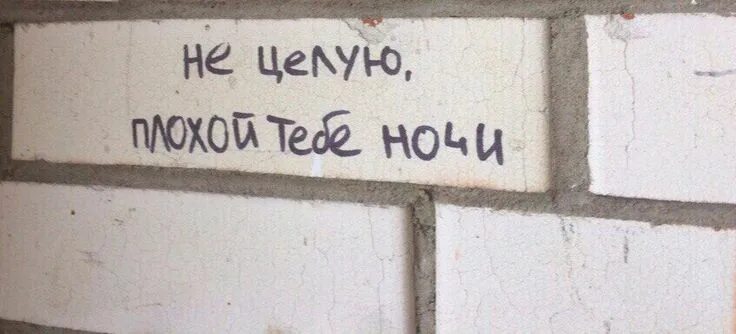 не целую,
плохой тебе ночи